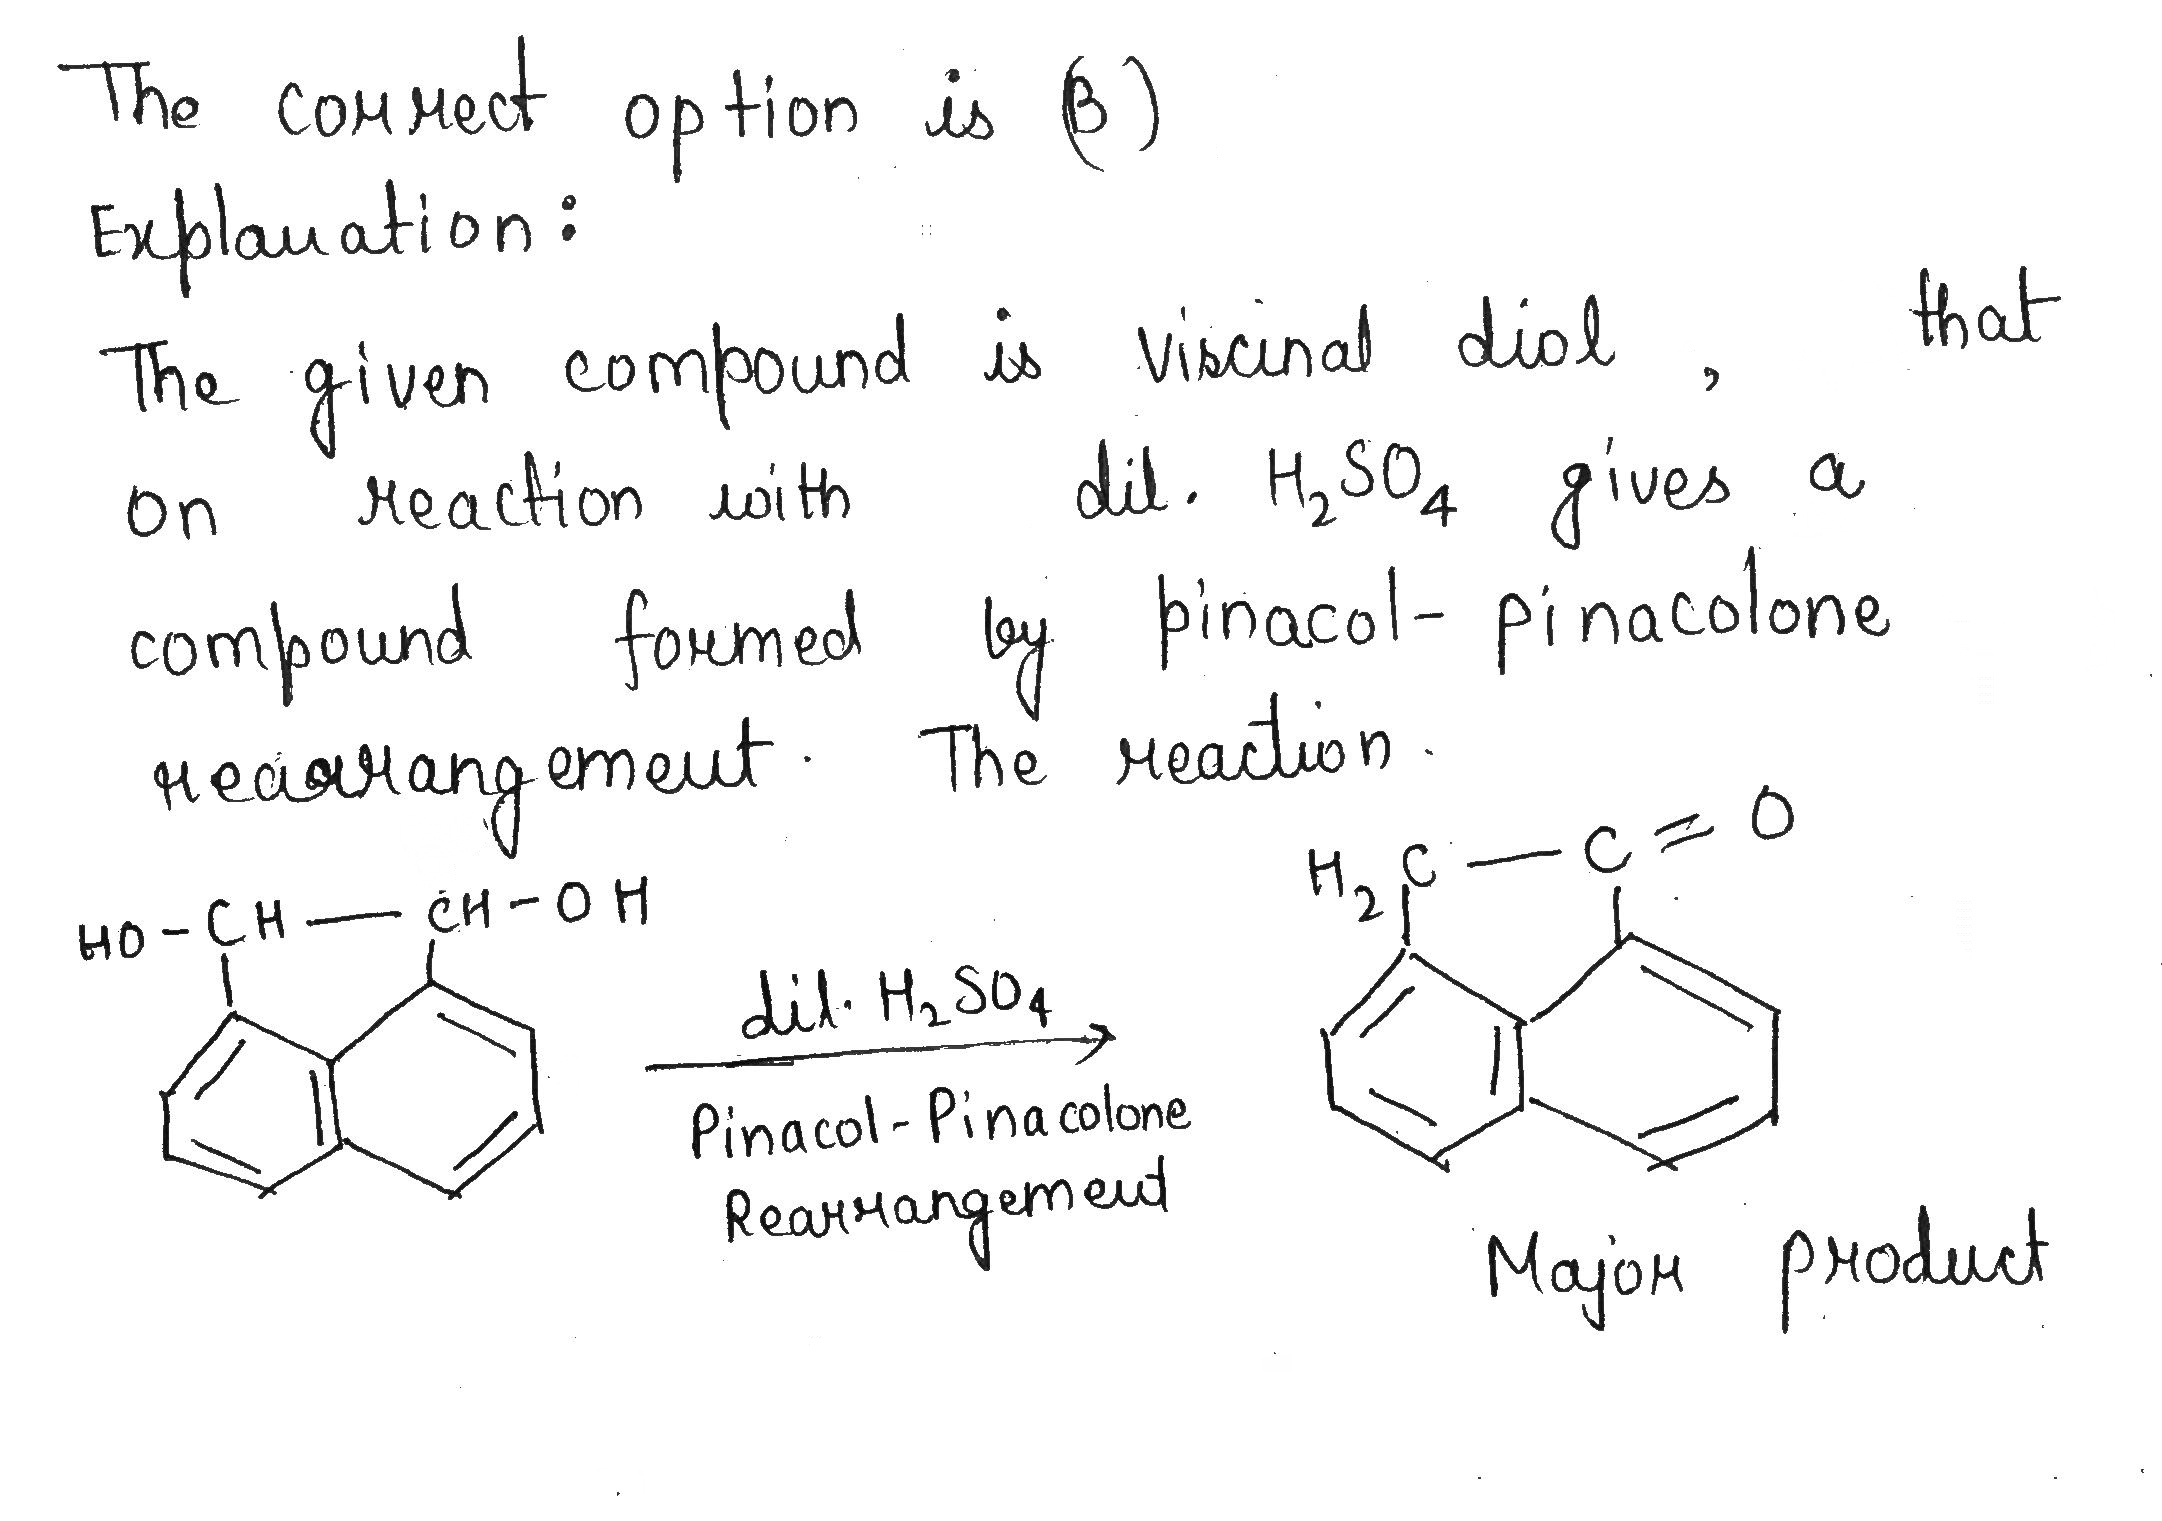 The correct option is (B)
Explanation:
The given compound is viscinal diol, that
on reaction with dil. H₂SO₄ gives a
compound formed by pinacol-pinacolone
rearrangement. The reaction.
H₂C — C = O
HO-CH — CH-OH
dil. H₂SO₄
Pinacol-Pinacolone
Rearrangement
Major product